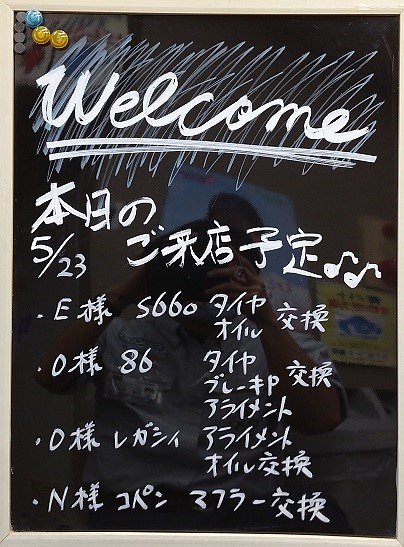 Welcome
本日の
5/23 ご来店予定♪♫
・E様 S660 タイヤ オイル 交換
・O様 86 タイヤ ブレーキP 交換
アライメント
・O様 レガシィ アライメント
オイル交換
・N様 コペン マフラー交換